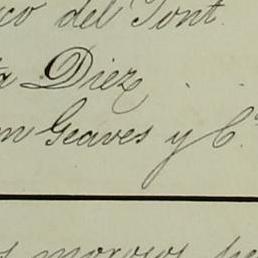 co del Pont.
a Diez
n Geaves y Cª
s morosos pe